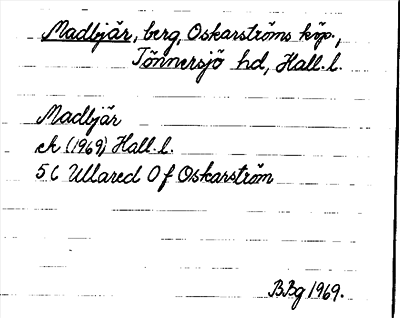 Madbjär, berg, Oskarströms köp.,
Tönnersjö hd, Hall. l.
Madbjär
ek (1969) Hall. l.
5C Ullared 0f Oskarström
BBg 1969.